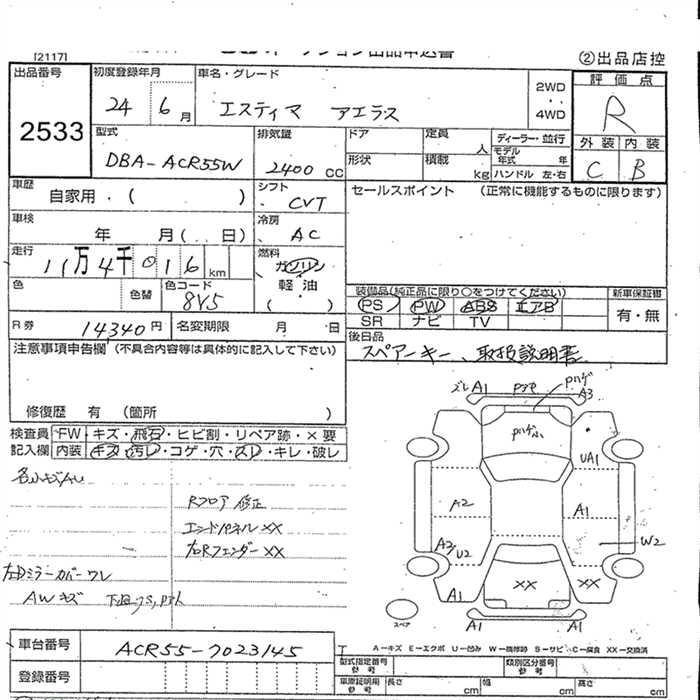 [2117]
②出品店控
出品番号 2533
初度登録年月 24 6月
車名・グレード エスティマ アエラス
2WD
・・
4WD
評価点 R
外装 内装
C B
型式 DBA-ACR55W
排気量 2400cc
ドア 定員 人
形状 積載 kg
ディーラー・並行
モデル年式 年
ハンドル 左・右
車歴 自家用・( )
シフト CVT
セールスポイント (正常に機能するものに限ります)
車検 年 月( 日)
冷房 AC
走行 11万4千016km
燃料 ガソリン
軽油
( )
色 色替 色コード 8V5
装備品(純正品に限り○をつけてください) 新車保証書
PS PW ABS エアB 有・無
SR ナビ TV
R券 14340円 名変期限 月 日
後日品
スペアーキー、取扱説明書
注意事項申告欄(不具合内容等は具体的に記入して下さい)
修復歴 有 (箇所 )
検査員 FW ・キズ・飛石・ヒビ割・リペア跡・×要
記入欄 内装 ・キズ・汚レ・コゲ・穴・スレ・キレ・破レ
Rフロア 修正
エンドパネル XX
右Rフェンダー XX
右Dミラーカバーワレ
AWキズ
ズレ A1 A3
UA1
A2 A1
A2 U2 W2
XX XX
A1 A1
スペア
車台番号 ACR55-7023145
登録番号
A-キズ E-エクボ U-凹み W-補修跡 S-サビ C-腐食 XX-交換済
型式指定番号 参考 類別区分番号 参考
車庫証明用 参考 長さ cm 幅 cm 高さ cm